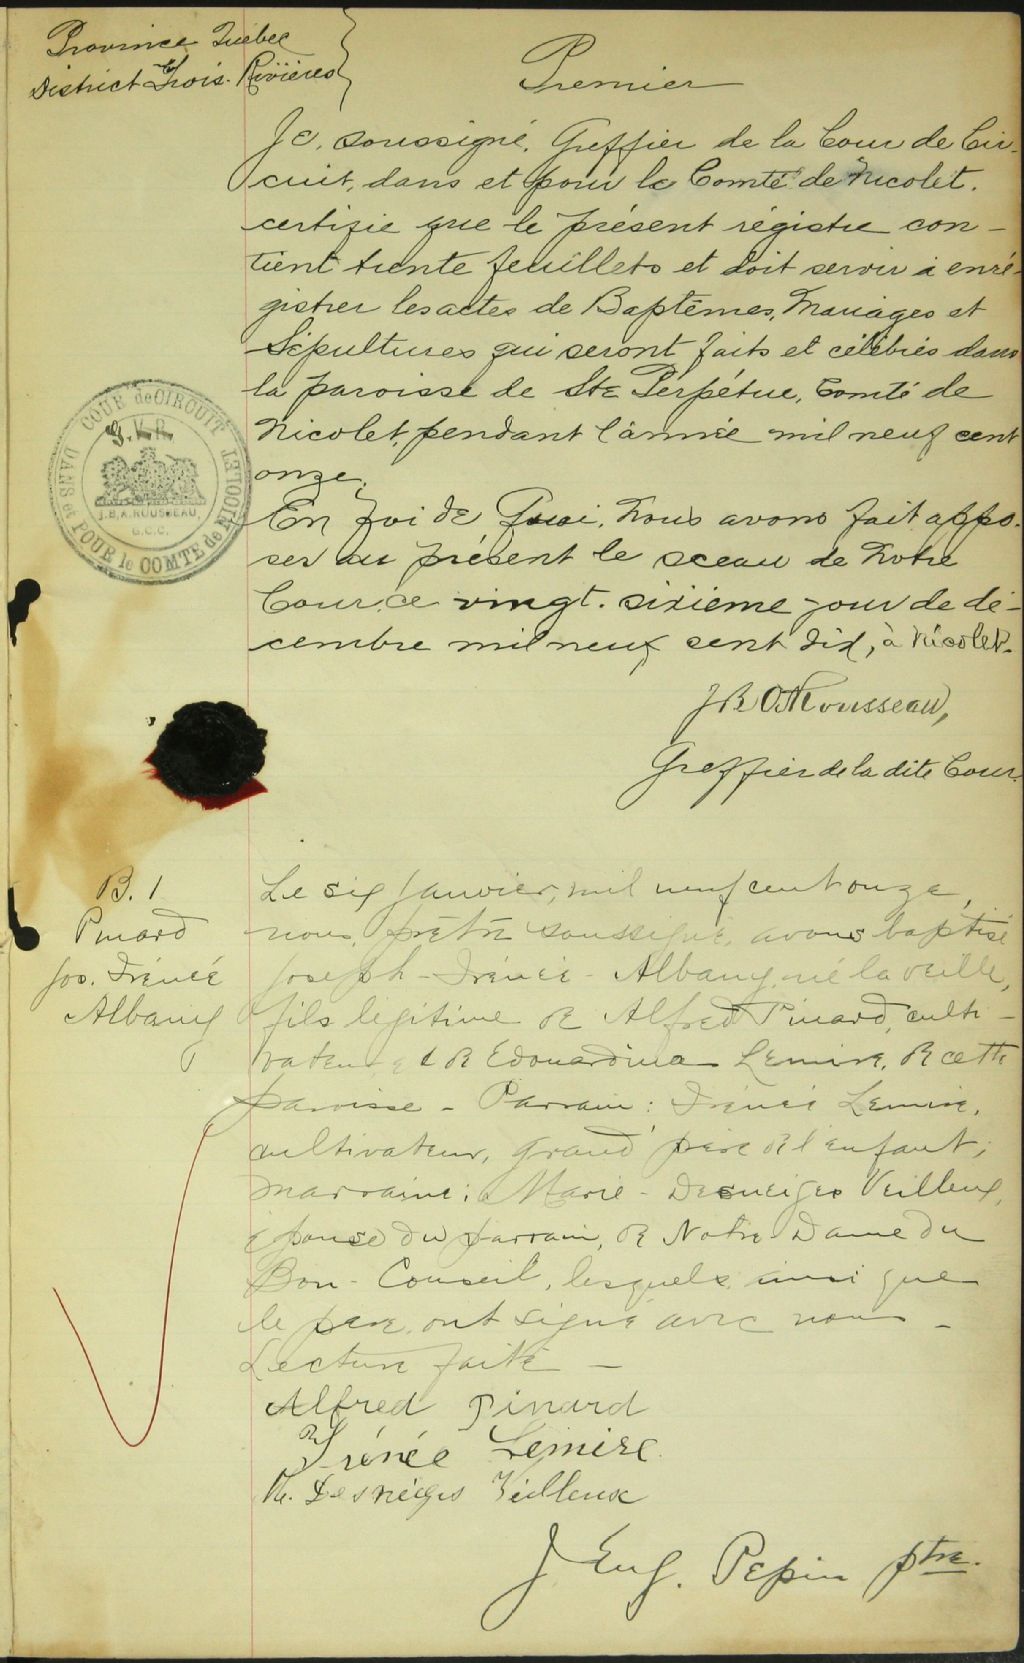 Province Québec
District Trois-Rivières
Premier
Je, soussigné, Greffier de la Cour de Cir-
cuit, dans et pour le Comté de Nicolet.
certifie que le présent régistre con-
tient trente feuillets et doit servir à enré-
gistrer les actes de Baptêmes, Mariages et
Sépultures qui seront faits et célébrés dans
la paroisse de Ste Perpétue, Comté de
Nicolet, pendant l'année mil neuf cent
onze.
En foi de Quoi, Nous avons fait appo-
ser au présent le sceau de Notre
Cour, ce vingt-sixième jour de dé-
cembre mil neuf cent dix, à Nicolet.
COUR de CIRCUIT
DANS et POUR le COMTE de NICOLET
G.V.R.
J.B.A. ROUSSEAU,
G.C.C.
J B A Rousseau,
Greffier de la dite Cour.
B. 1
Pinard
Jos. Irénée
Albany
Le six Janvier, mil neuf cent onze,
nous, prêtre soussigné, avons baptisé
Joseph-Irénée-Albany, né la veille,
fils légitime de Alfred Pinard, culti-
vateur, et de Edouardina Lemire, de cette
paroisse - Parrain: Irénée Lemire,
cultivateur, grand'père de l'enfant;
marraine: Marie-Desneiges Veilleux,
épouse du parrain, de Notre Dame du
Bon-Conseil, lesquels, ainsi que
le père, ont signé avec nous -
Lecture faite -
Alfred Pinard
Irénée Lemire
M. Desneiges Veilleux
J Eug. Pepin ptre.